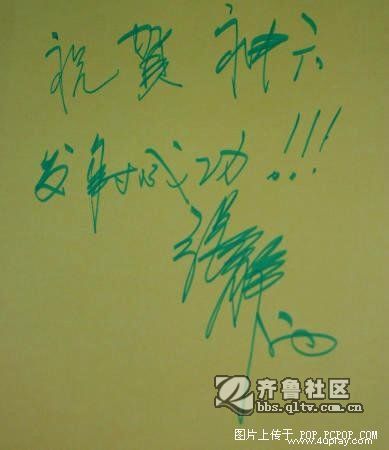 祝贺神六
发射成功!!!
张
齐鲁社区
bbs.qltv.com.cn
图片上传于 POP.PCPOP.COM
www.4dpray.com